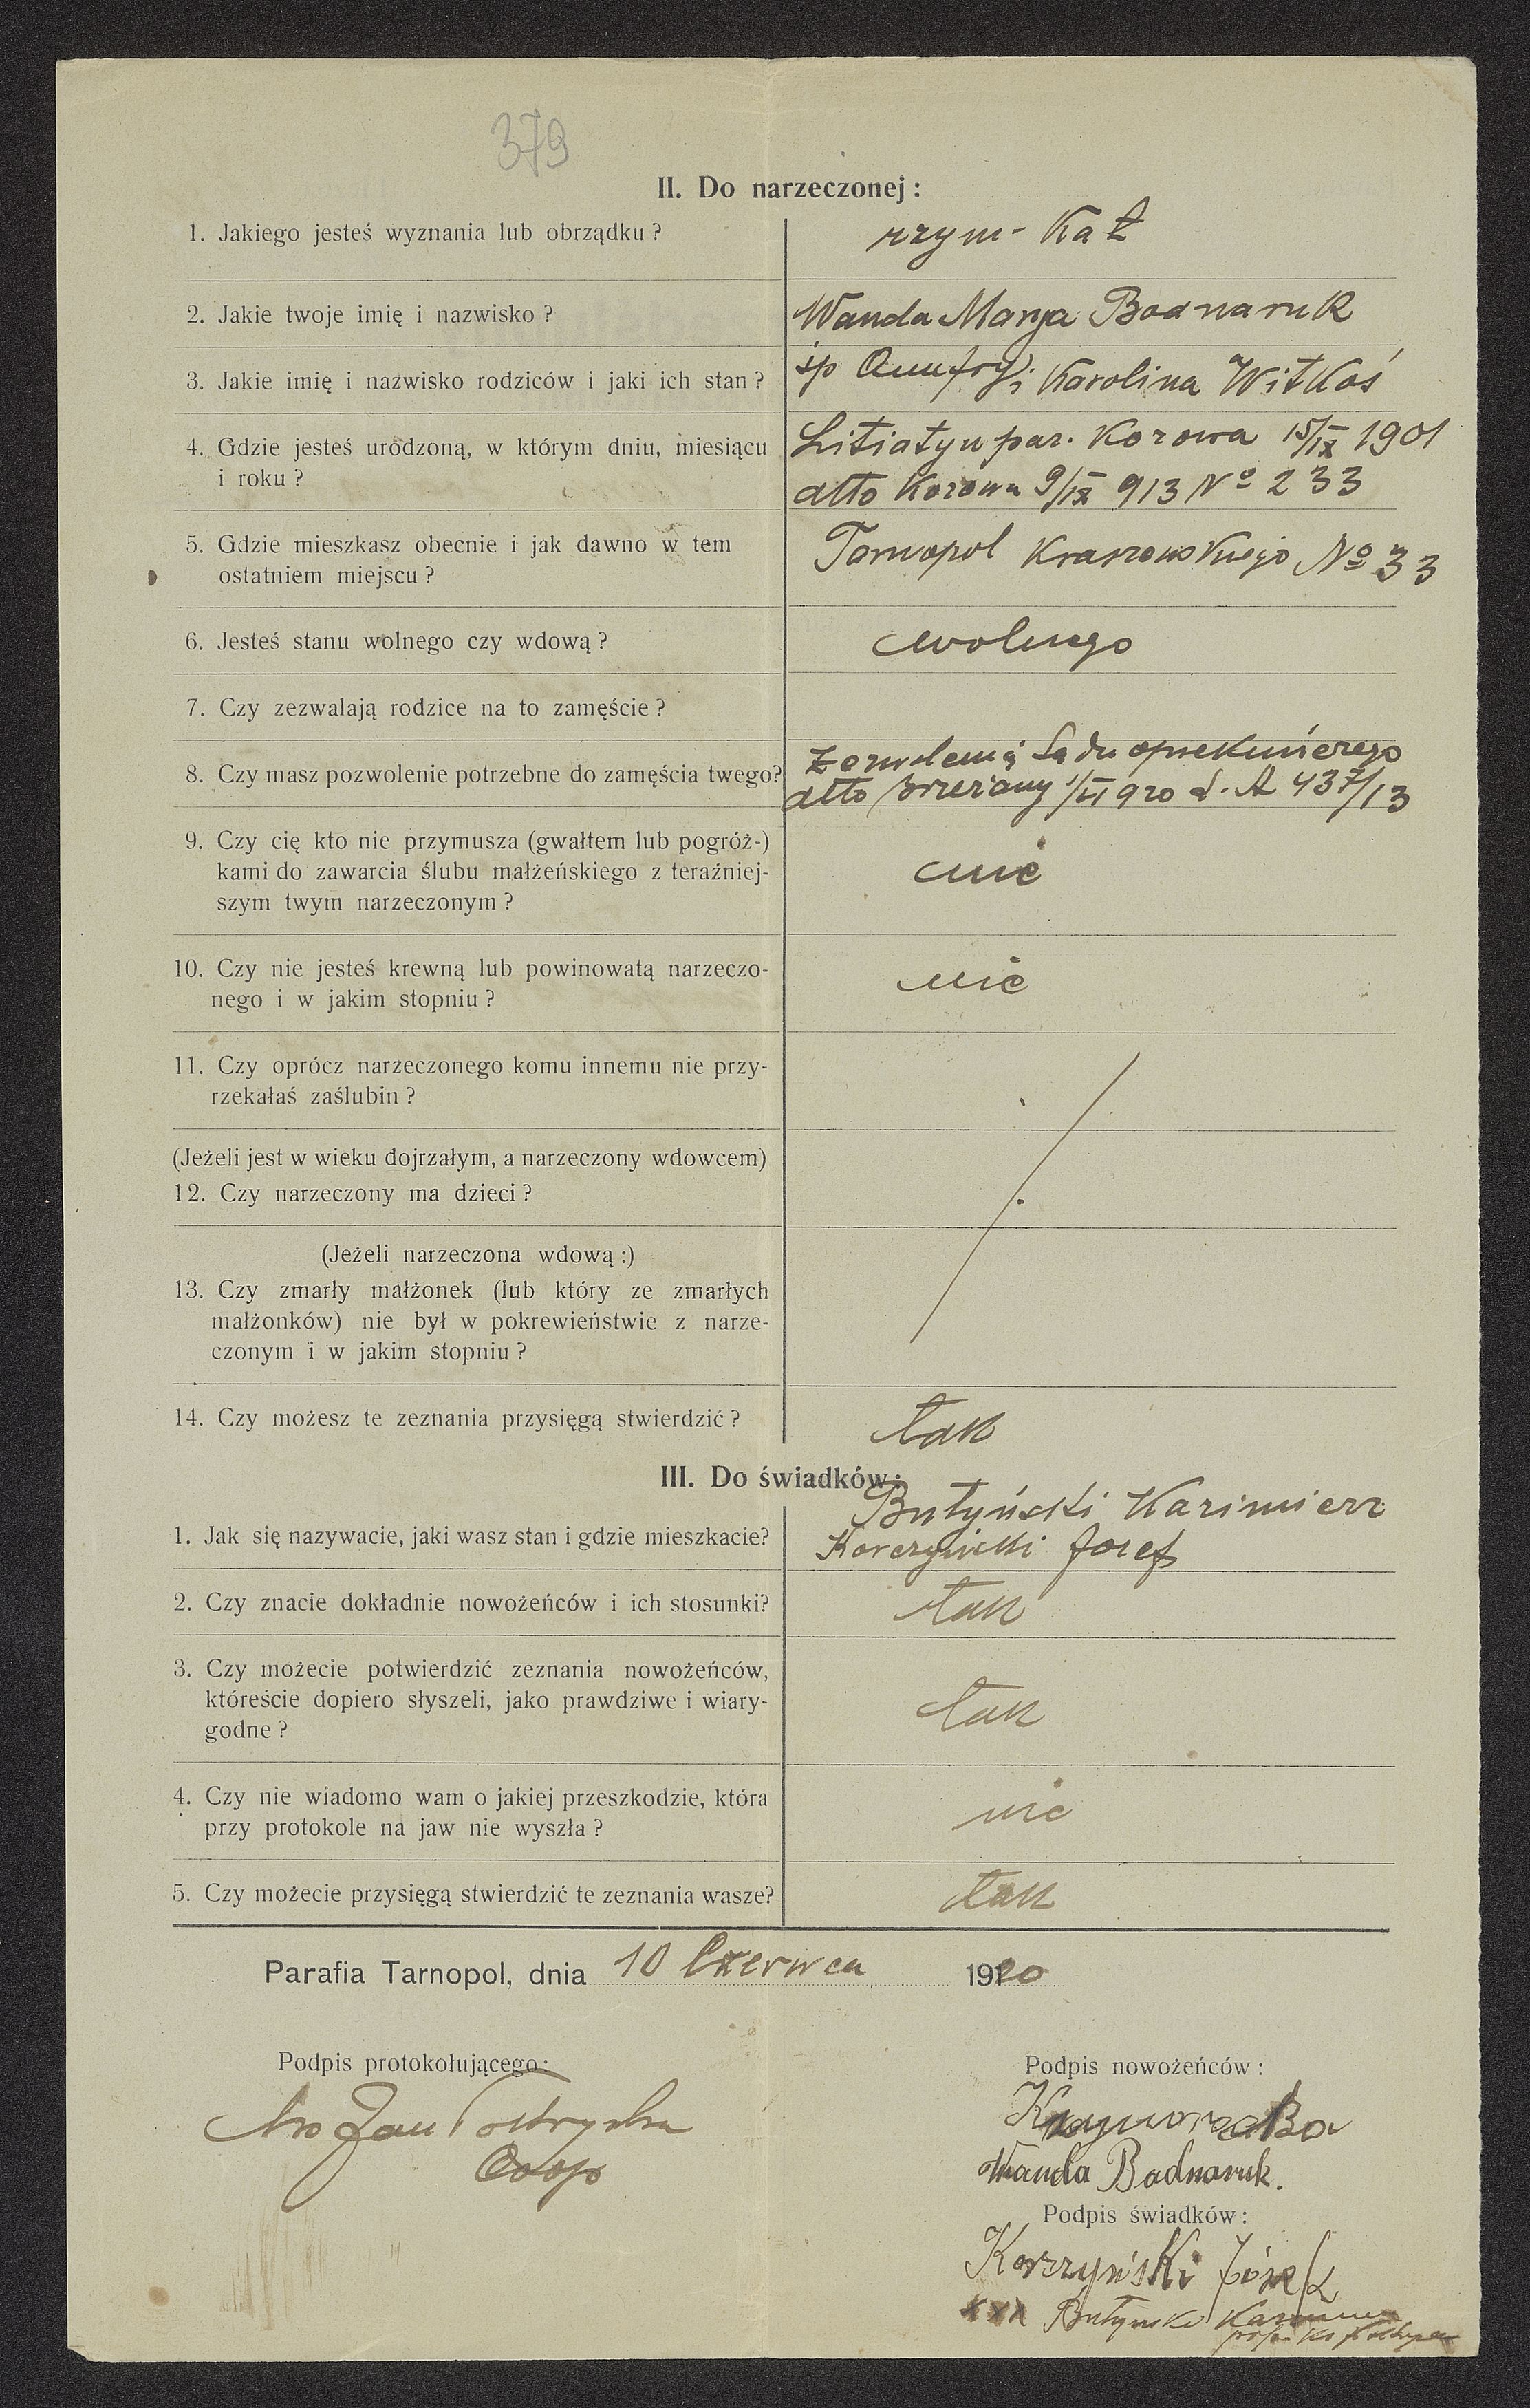 379
II. Do narzeczonej:
1. Jakiego jesteś wyznania lub obrządku?
rzym- Kat
2. Jakie twoje imię i nazwisko?
Wanda Marya Bodnaruk
3. Jakie imię i nazwisko rodziców i jaki ich stan?
śp Onufry i Karolina Witkoś
4. Gdzie jesteś urodzoną, w którym dniu, miesiącu
i roku?
Litiatyn par. Kozowa 15/IX 1901
dtto Kozowa 9/IX 913 No 233
5. Gdzie mieszkasz obecnie i jak dawno w tem
ostatniem miejscu?
Tarnopol Kraszewskiego No 33
6. Jesteś stanu wolnego czy wdową?
wolnego
7. Czy zezwalają rodzice na to zamęście?
8. Czy masz pozwolenie potrzebne do zamęścia twego?
Sądu opiekuńczego
dtto Brzeżany 1/VI 920 A 437/13
9. Czy cię kto nie przymusza (gwałtem lub pogróż-)
kami do zawarcia ślubu małżeńskiego z teraźniej-
szym twym narzeczonym?
nie
10. Czy nie jesteś krewną lub powinowatą narzeczo-
nego i w jakim stopniu?
nie
11. Czy oprócz narzeczonego komu innemu nie przy-
rzekałaś zaślubin?
(Jeżeli jest w wieku dojrzałym, a narzeczony wdowcem)
12. Czy narzeczony ma dzieci?
(Jeżeli narzeczona wdową:)
13. Czy zmarły małżonek (lub który ze zmarłych
małżonków) nie był w pokrewieństwie z narze-
czonym i w jakim stopniu?
14. Czy możesz te zeznania przysięgą stwierdzić?
tak
III. Do świadków:
1. Jak się nazywacie, jaki wasz stan i gdzie mieszkacie?
Butyński Kazimierz
Korczyński Józef
2. Czy znacie dokładnie nowożeńców i ich stosunki?
tak
3. Czy możecie potwierdzić zeznania nowożeńców,
któreście dopiero słyszeli, jako prawdziwe i wiary-
godne?
tak
4. Czy nie wiadomo wam o jakiej przeszkodzie, która
przy protokole na jaw nie wyszła?
nie
5. Czy możecie przysięgą stwierdzić te zeznania wasze?
tak
Parafia Tarnopol, dnia 10 Czerwca 1920
Podpis protokołującego:
Jan
Coop
Podpis nowożeńców:
Wanda Bodnaruk.
Podpis świadków:
Korzyński Józef
xxx Butyński Kazimierz